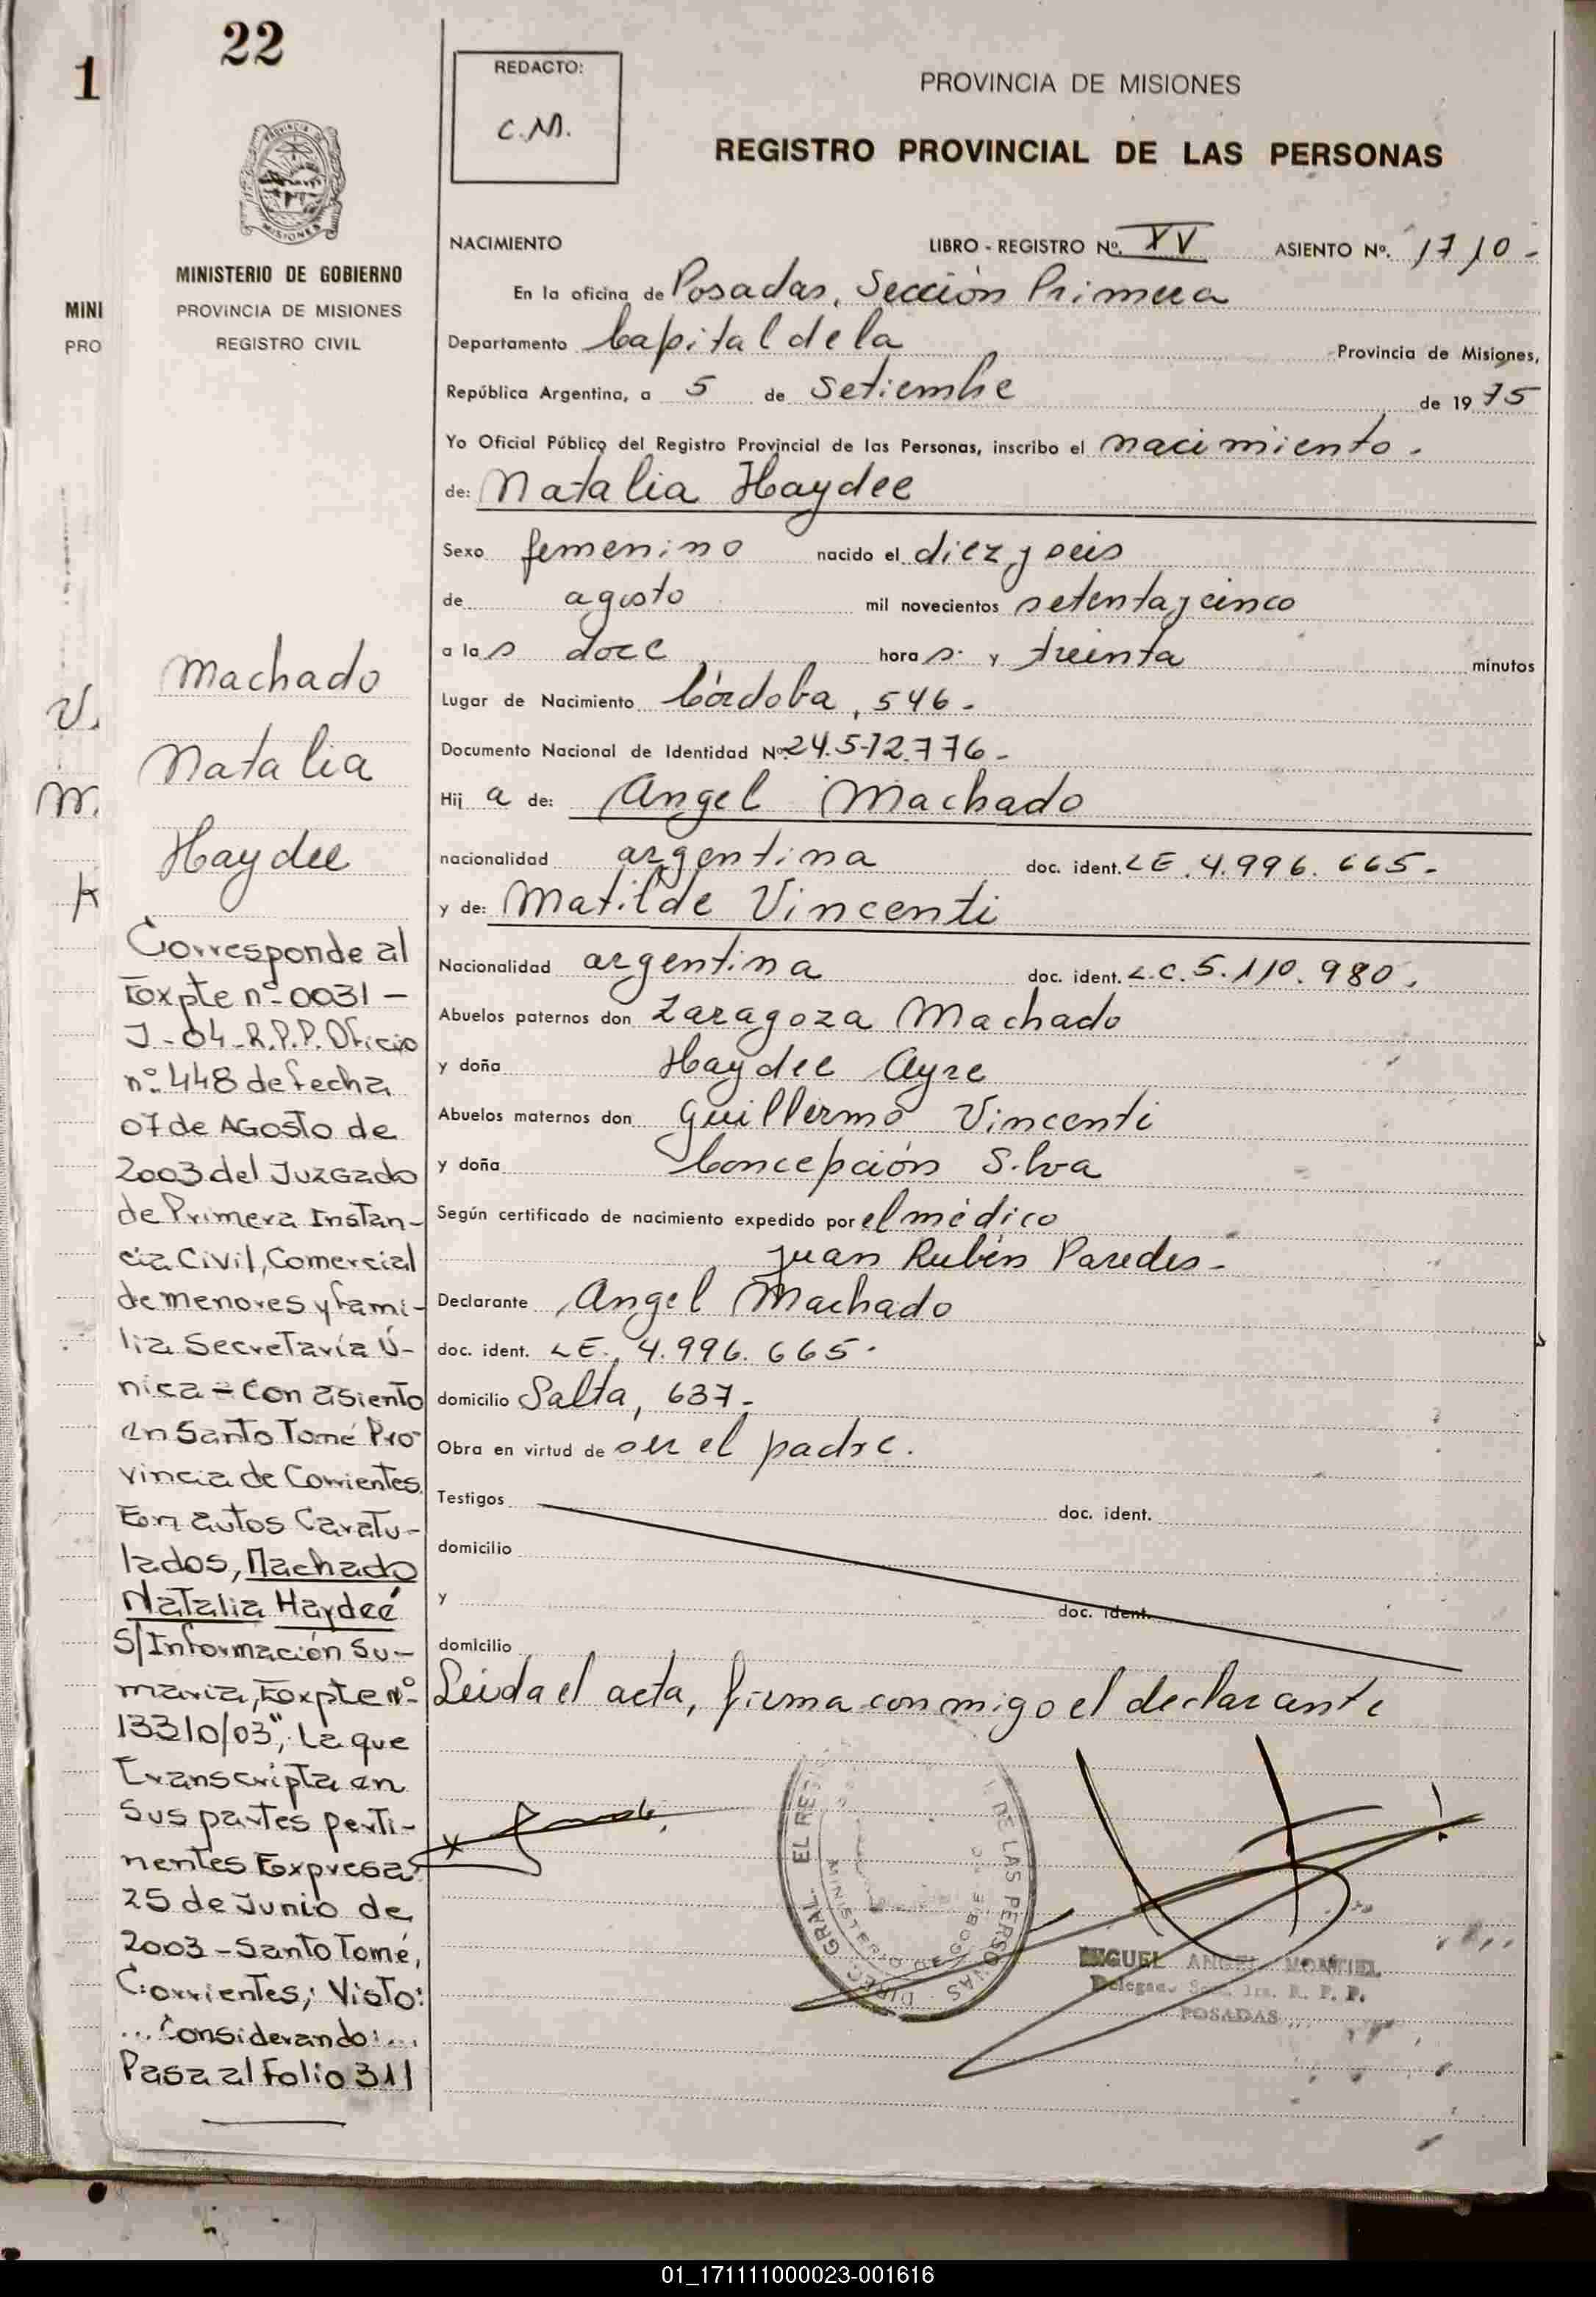 22
1
MINISTERIO DE GOBIERNO
PROVINCIA DE MISIONES
REGISTRO CIVIL
MINI
PRO
Machado
Natalia
Haydee
Corresponde al
Expte nº 0031 -
J - 04 - R.P.P. Oficio
nº 448 de fecha
07 de AGOSTO de
2003 del JUZGADO
de Primera Instan-
cia Civil, Comercial
de menores y fami-
lia Secretaría Ú-
nica - Con asiento
en Santo Tomé Pro
vincia de Corrientes
En autos Caratu-
lados, Machado
Natalia Haydeé
S/Información Su-
maria, Expte nº
13310/03", La que
transcripta en
sus partes perti-
nentes Expresa:
25 de Junio de
2003 - Santo Tomé,
Corrientes; Visto:
... Considerando: ...
Pasa al Folio 311
REDACTO:
C.M.
PROVINCIA DE MISIONES
REGISTRO PROVINCIAL DE LAS PERSONAS
NACIMIENTO LIBRO - REGISTRO Nº. XV ASIENTO Nº. 1710 -
En la oficina de Posadas, Sección Primera
Departamento Capital de la Provincia de Misiones,
República Argentina, a 5 de Setiembre de 19 75
Yo Oficial Público del Registro Provincial de las Personas, inscribo el nacimiento.
de: Natalia Haydee
Sexo femenino nacido el diez y seis
de agosto mil novecientos setenta y cinco
a las doce horas. y treinta minutos
Lugar de Nacimiento Córdoba, 546 -
Documento Nacional de Identidad Nº 24.572.776 -
Hija de: Angel Machado
nacionalidad argentina doc. ident. LE. 4.996.665 -
y de: Matilde Vincenti
Nacionalidad argentina doc. ident. L.C. 5.110.980.
Abuelos paternos don Zaragoza Machado
y doña Haydee Ayre
Abuelos maternos don Guillermo Vincenti
y doña Concepción Silva
Según certificado de nacimiento expedido por el médico
Juan Rubén Paredes -
Declarante Angel Machado
doc. ident. LE. 4.996.665.
domicilio Salta, 637 -
Obra en virtud de ser el padre.
Testigos doc. ident.
domicilio
y doc. ident.
domicilio
Leida el acta, firma conmigo el declarante
MIGUEL ANGEL MONTIEL
R. P. P.
POSADAS
01_171111000023-001616